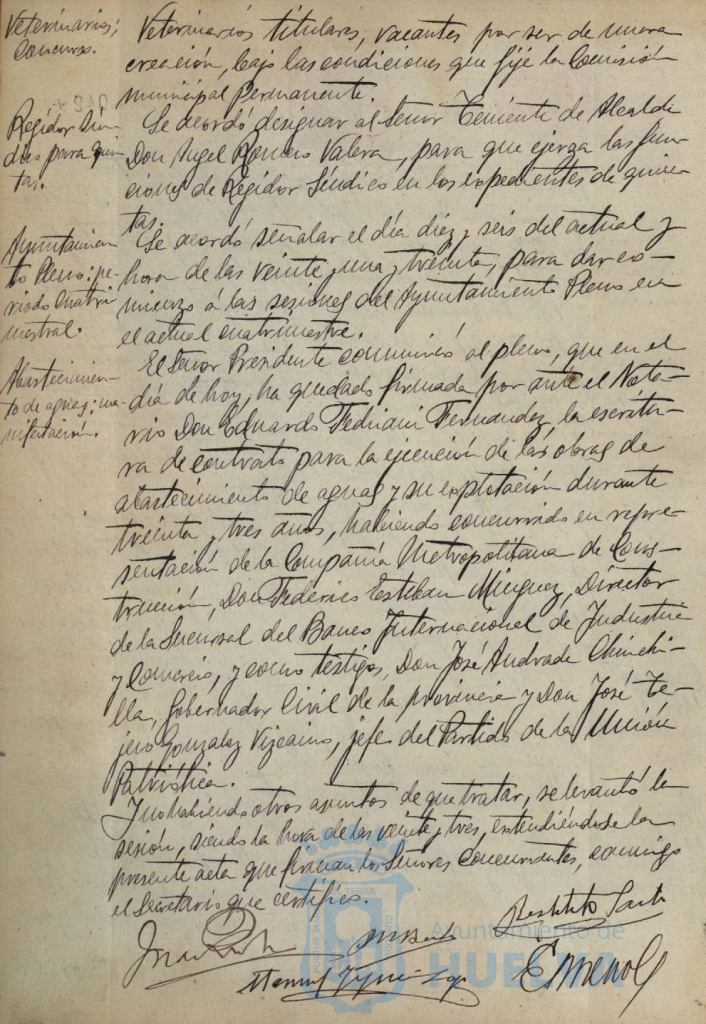 Veterinarios;
Concurso.
Veterinarios titulares, vacantes por ser de nueva
creación, bajo las condiciones que fije la Comisión
municipal Permanente.
Regidor Sín-
dico para quin-
tas.
Se acordó designar al Señor Teniente de Alcalde
Don Angel Romero Valera, para que ejerza las fun-
ciones de Regidor Síndico en los expedientes de quin-
tas.
Ayuntamien-
to Pleno: pe-
riodo cuatri
mestral.
Se acordó señalar el día diez y seis del actual y
hora de las veinte y una y treinta, para dar co-
mienzo á las sesiones del Ayuntamiento Pleno en
el actual cuatrimestre.
Abastecimien-
to de aguas; ma-
nifestación.
El Señor Presidente comunicó al pleno, que en el
día de hoy, ha quedado firmada por ante el Nota-
rio Don Eduardo Fedriani Fernandez, la escritu-
ra de contrato para la ejecución de las obras de
abastecimiento de aguas y su explotación durante
treinta y tres años, habiendo concurrido en repre-
sentación de la Compañía Metropolitana de Cons-
trucción, Don Federico Esteban Minguez, Director
de la Sucursal del Banco Internacional de Industria
y Comercio, y como testigos, Don José Andrade Chinchi-
lla, Gobernador Civil de la provincia y Don José Te-
jero Gonzalez Vizcaino, jefe del Partido de la Unión
Patriótica.
Y no habiendo otros asuntos de que tratar, se levantó la
sesión, siendo la hora de las veinte y tres, extendiéndose la
presente acta que firman los Señores Concurrentes, conmigo
el Secretario que certifico.
Restituto
Ayuntamiento de
HUELVA